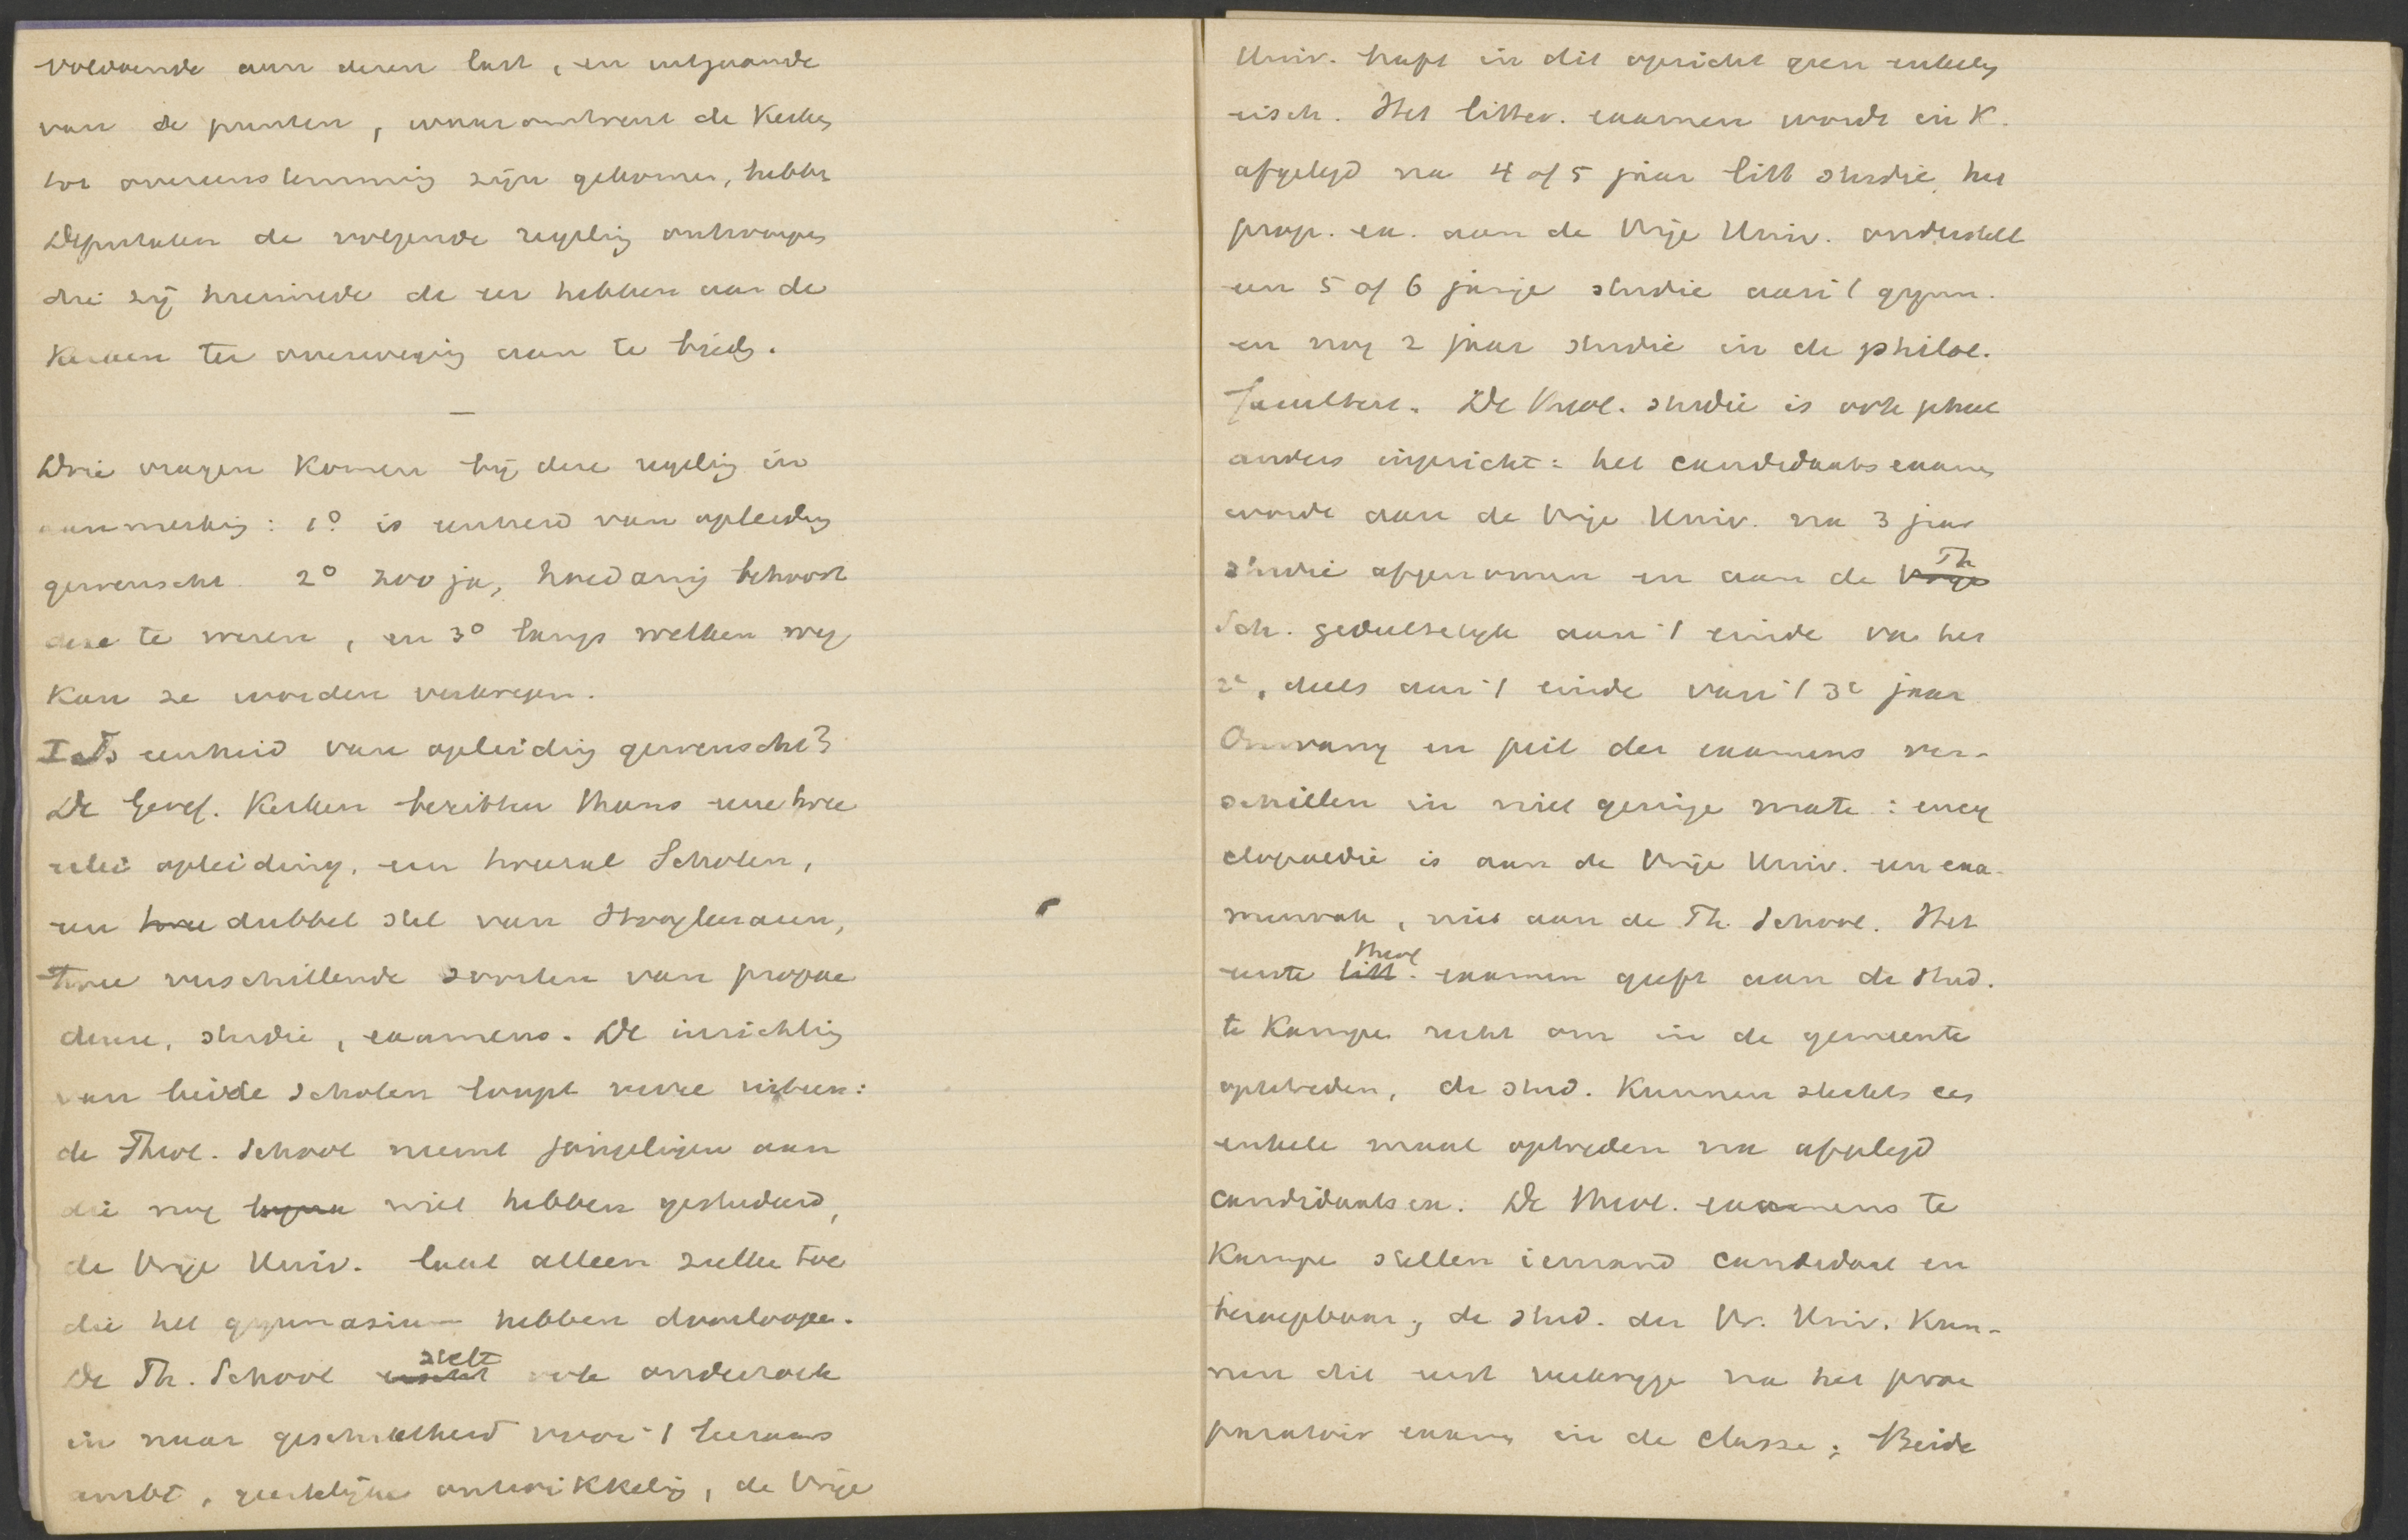 voldoende aan dezen last, en uitgaande
van de punten, waaromtrent de Kerken
tot overeenstemming zijn gekomen, hebben
Deputaten de volgende regeling ontworpen
die zij hiermede de eer hebben aan de
Kerken ter overweging aan te bieden.
—
Drie vragen komen bij deze regeling in
aanmerking: 1° is eenheid van opleiding
gewenscht 2° zoo ja, hoedanig behoort
deze te wezen, en 3° langs welken weg
kan ze worden verkregen.
I Is eenheid van opleiding gewenscht?
De Geref. Kerken bezitten thans eene twee
erlei opleiding, een tweetal Scholen,
een twee dubbel stel van Hoogleeraren,
twee verschillende soorten van propae
deuse, studie, examens. De inrichting
van beide scholen loopt verre uiteen:
de Theol. School neemt jongelingen aan
die nog niet hebben gestudeerd,
de Vrije Univ. laat alleen zulke toe
die het gymnasium hebben doorloopen.
De Th. School stelt ook onderzoek
in naar geschiktheid voor 't leeraars
ambt, geestelijke ontwikkeling, de Vrije
Univ. heeft in dit opzicht geen enkelen
eisch. Het litter. examen wordt in K.
afgelegd na 4 of 5 jaar litt studie, het
prop. ex. aan de Vrije Univ. onderstelt
een 5 of 6 jarige studie aan 't gymn.
en nog 2 jaar studie in de philol.
faculteit. De theol. studie is ook gheel
anders ingericht: het candidaatsexamen
wordt aan de Vrije Univ. na 3 jaar
studie afgenomen en aan de Vrije Th
Sch. gedeeltelijk aan 't einde van het
2e, deels aan 't einde van 't 3e jaar
Omvang en peil der examens ver-
schillen in niet geringe mate: ency
clopaedie is aan de Vrije Univ. een exa-
menvak, niet aan de Th. School. Het
eerste litt. theol examen geeft aan de stud.
te Kampen recht om in de gemeente
optetreden, de stud. kunnen slechts een
enkele maal optreden na afgelegd
candidaatsex. De theol. examens te
Kampen stellen iemand candidaat en
beroepbaar; de stud. der Vr. Univ. kun-
nen dit eerst verkrijgen na het prae
paratoir examen in de classe; Beide